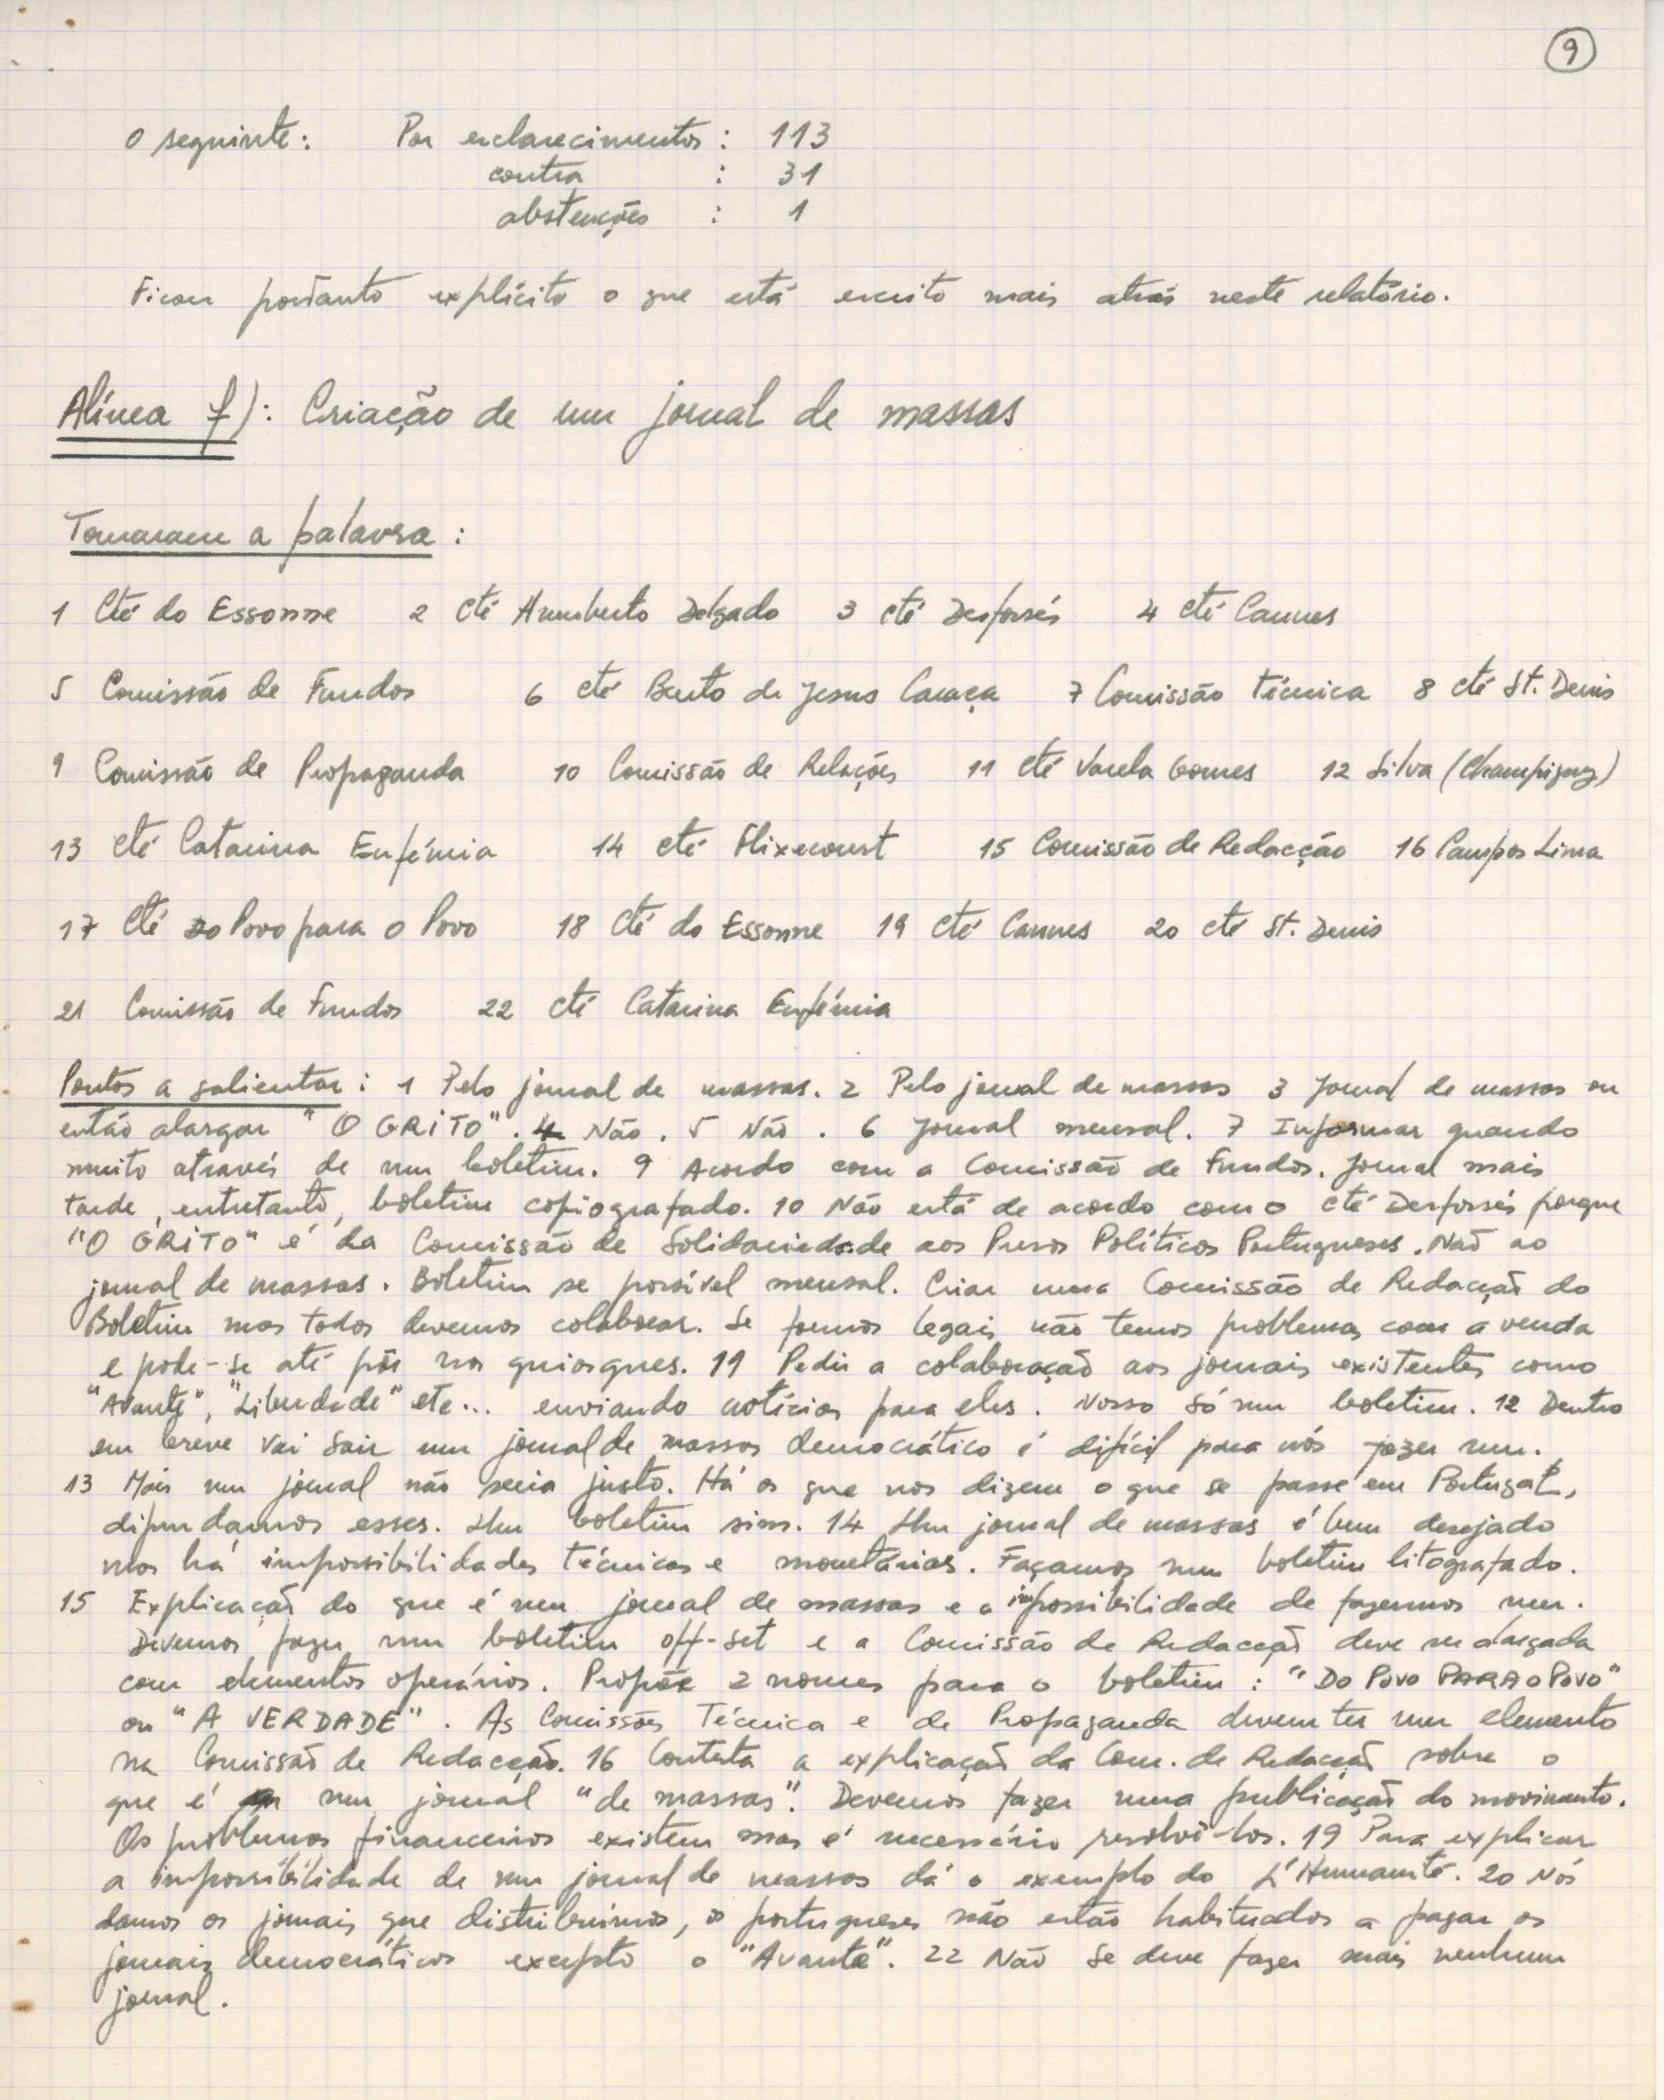 9
o seguinte: Por esclarecimentos : 113
contra : 31
abstenções : 1
Ficou portanto explícito o que está escrito mais atrás neste relatório.
Alínea f): Criação de um jornal de massas
Tomaram a palavra :
1 Cté do Essonne 2 Cté Humberto Delgado 3 Cté Desfossés 4 Cté Cannes
5 Comissão de Fundos 6 Cté Bento de Jesus Caraça 7 Comissão Técnica 8 Cté St. Denis
9 Comissão de Propaganda 10 Comissão de Relações 11 Cté Varela Gomes 12 Silva (Champigny)
13 Cté Catarina Eufémia 14 Cté Flixecourt 15 Comissão de Redacção 16 Campos Lima
17 Cté Do Povo para o Povo 18 Cté do Essonne 19 Cté Cannes 20 Cté St. Denis
21 Comissão de Fundos 22 Cté Catarina Eufémia
Pontos a salientar : 1 Pelo jornal de massas. 2 Pelo jornal de massas 3 Jornal de massas ou
então alargar "O GRITO". 4 Não. 5 Não. 6 Jornal mensal. 7 Informar quando
muito através de um boletim. 9 Acordo com a Comissão de Fundos. Jornal mais
tarde, entretanto, boletim copiografado. 10 Não está de acordo com o Cté Desfossés porque
"O GRITO" é da Comissão de Solidariedade aos Presos Políticos Portugueses. Não ao
jornal de massas. Boletim se possível mensal. Criar uma Comissão de Redacção do
Boletim mas todos devemos colaborar. Se formos legais não temos problemas com a venda
e pode-se até pôr nos quiosques. 11 Pedir a colaboração aos jornais existentes como
"Avante", "Liberdade" etc... enviando notícias para eles. Nosso só um boletim. 12 Dentro
em breve vai sair um jornal de massas democrático é difícil para nós fazer um.
13 Mais um jornal não seria justo. Há os que nos dizem o que se passe em Portugal,
difundamos esses. Um boletim sim. 14 Um jornal de massas é bem desejado
mas há impossibilidades técnicas e monetárias. Façamos um boletim litografado.
15 Explicação do que é um jornal de massas e a impossibilidade de fazermos um.
Devemos fazer um boletim off-set e a Comissão de Redacção deve ser alargada
com elementos operários. Propõe 2 nomes para o boletim : "DO POVO PARA O POVO"
ou "A VERDADE". As Comissões Técnica e de Propaganda devem ter um elemento
na Comissão de Redacção. 16 Contesta a explicação da Com. de Redacção sobre o
que é um jornal "de massas". Devemos fazer uma publicação do movimento.
Os problemas financeiros existem mas é necessário resolvê-los. 19 Para explicar
a impossibilidade de um jornal de massas dá o exemplo do L'Humanité. 20 Nós
damos os jornais que distribuimos, os portugueses não estão habituados a pagar os
jornais democráticos excepto o "Avante". 22 Não se deve fazer mais nenhum
jornal.